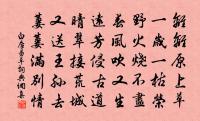 離離原上草
一歲一枯榮
野火燒不盡
春風吹又生
遠芳侵古道
晴翠接荒城
又送王孫去
萋萋滿別情
白居易草詞典網集